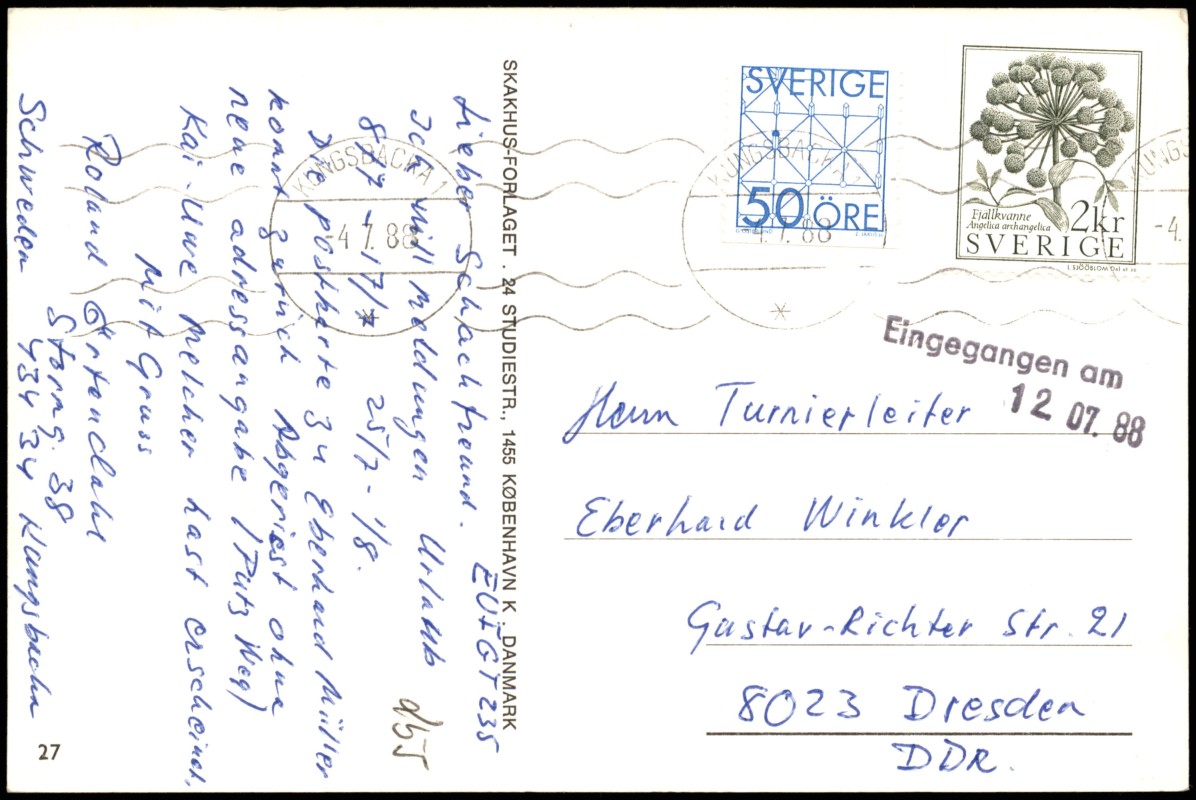 Lieber Schachfreund. EU/GT 235
Ich will Meldungen Urlaub
8/7 - 17/7 25/7 - 1/8.
Die postkarte zu Eberhard Müller
komt zurück Abgeriest ohne
neue adressangabe (Putz Weg)
Kai-Uwe Melcher hast erscheinet,
Mit Gruss
Roland Örtendahl
Storng. 38
434 34 Kungsbacka
Schweden
27
SKAKHUS-FORLAGET . 24 STUDIESTR., 1455 KØBENHAVN K . DANMARK
KUNGSBACKA 1
-4.7.88
SVERIGE
50 ÖRE
KUNGSBACKA 1
-4.7.88
Fjällkvanne
Angelica archangelica
2kr
SVERIGE
KUNGS
-4.
Eingegangen am
12 07. 88
Herrn Turnierleiter
Eberhard Winkler
Gustav-Richter Str. 21
8023 Dresden
DDR.